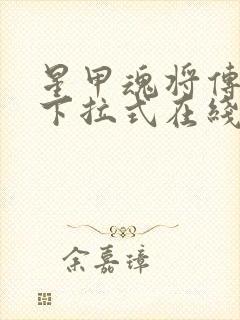 星甲魂将傳
下拉式在綫
余嘉璋